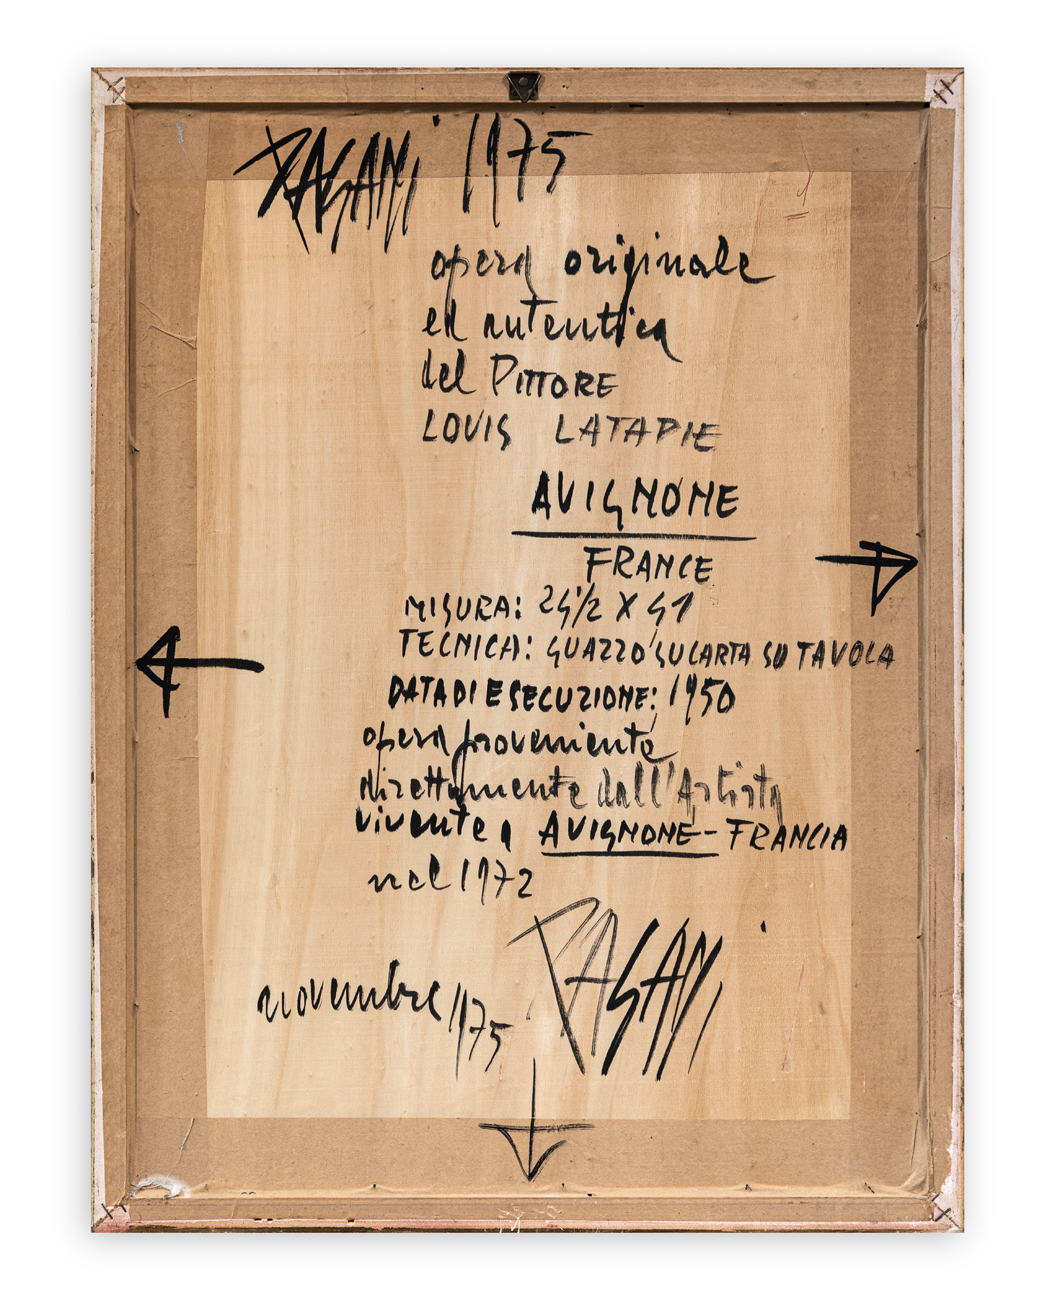 PAGANI 1975
opera originale
ed autentica
del PITTORE
LOUIS LATAPIE
AVIGNONE
FRANCE
MISURA: 24½ X 41
TECNICA: GUAZZO SU CARTA SU TAVOLA
DATA DI ESECUZIONE: 1950
opera proveniente
direttamente dall'Artista
vivente a AVIGNONE - FRANCIA
nel 1972
PAGANI
novembre 1975